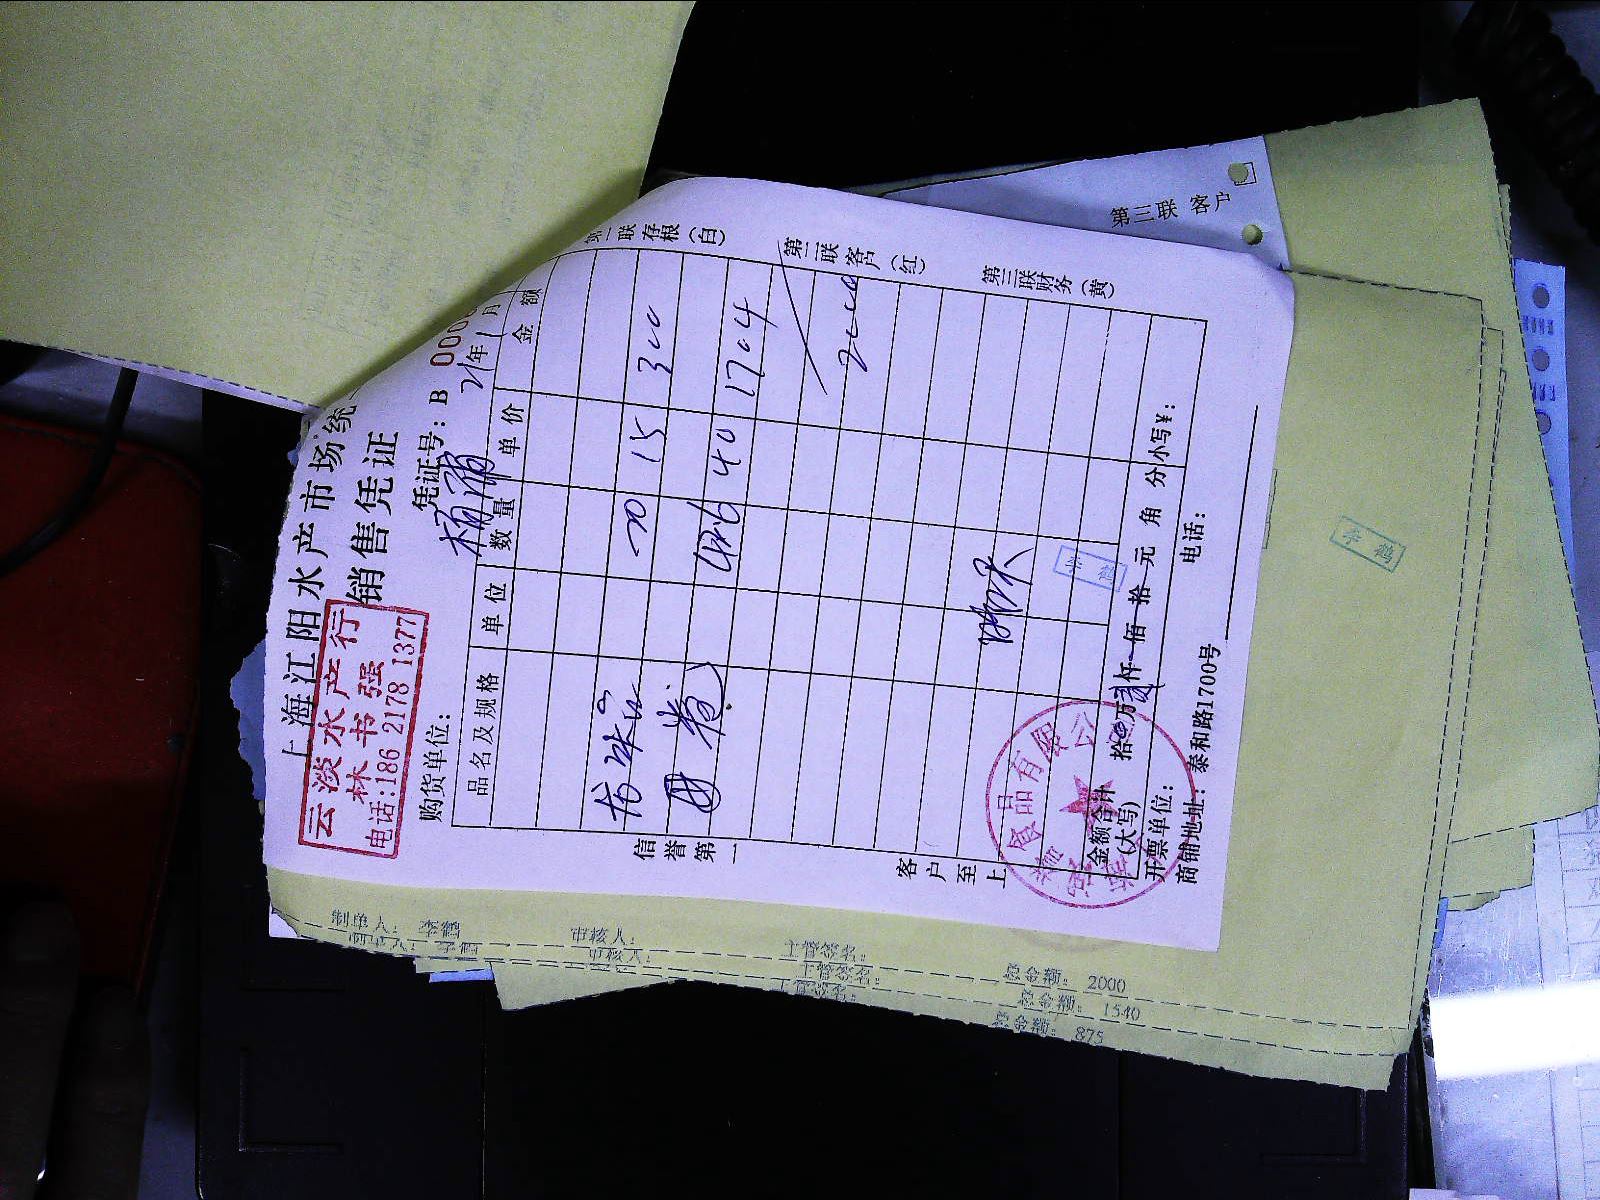 上海江阳水产市场统一
销售凭证
云淡水产行
林书强
电话:186 2178 1377
凭证号: B 000
21年1月
购货单位:
品名及规格 单位 数量 单价 金额
20 15 300
42.6 40 1704
2000
信誉第一
客户至上
第一联存根(白)
第二联客户(红)
第三联财务(黄)
金额合计
(大写)
拾 万 仟 佰 拾 元 角 分 小写¥:
开票单位: 电话:
商铺地址: 泰和路1700号
食品有限公
第三联 客户
制单人: 审核人: 主管签名: 总金额: 2000
制单人: 审核人: 主管签名: 总金额: 1540
主管签名: 总金额: 875